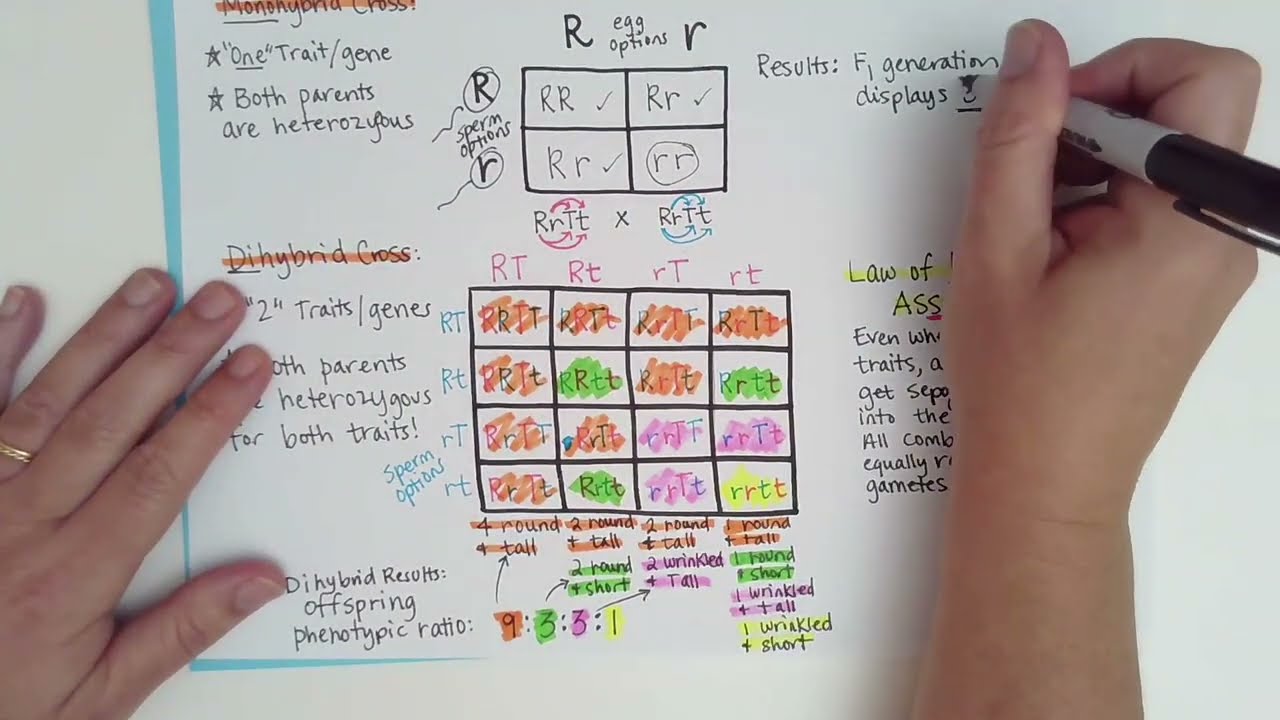 Monohybrid Cross:
☆ "One" Trait/gene
☆ Both parents
are heterozygous
R egg options r
R
sperm options
r
RR ✓ Rr ✓
Rr ✓ rr
RrTt x RrTt
Results: F1 generation
displays
Dihybrid Cross:
"2" Traits/genes
both parents
heterozygous
for both traits!
sperm options
RT Rt rT rt
RT RRTT RRTt RrTT RrTt
Rt RRTt RRtt RrTt Rrtt
rT RrTT RrTt rrTT rrTt
rt RrTt Rrtt rrTt rrtt
4 round + tall
2 round + tall
2 round + short
2 round + tall
2 wrinkled + Tall
1 round + tall
1 round + short
1 wrinkled + tall
1 wrinkled + short
Dihybrid Results:
offspring
phenotypic ratio: 9:3:3:1
Law of
Ass
Even wh
traits, a
get sepa
into the
All comb
equally r
gametes